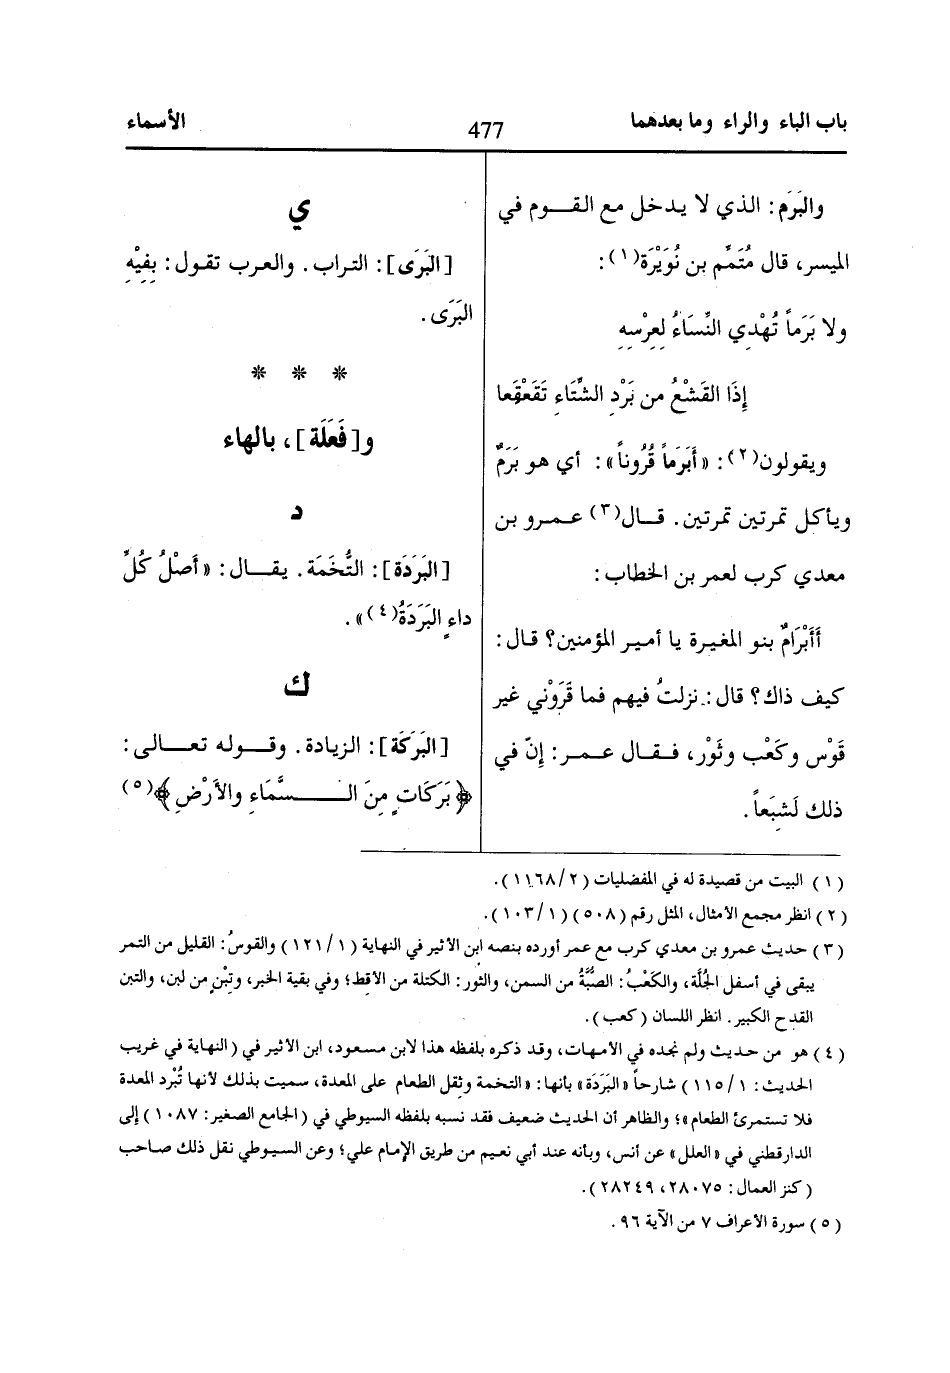 باب الباء والراء وما بعدهما
477
الأسماء
والبَرَم: الذي لا يدخل مع القوم في
الميسر، قال مُتَمِّم بن نُوَيْرَة(١):
ولا بَرَماً تُهْدي النِّسَاءُ لِعِرْسِهِ
إِذَا القَشْعُ من بَرْدِ الشِّتَاءِ تَقَعْقَعا
ويقولون(٢): «أَبَرَماً قُرُوناً»: أي هو بَرَمٌ
ويأكل تمرتين تمرتين. قال(٣) عمرو بن
معدي كرب لعمر بن الخطاب:
أَأَبْرَامٌ بنو المغيرة يا أمير المؤمنين؟ قال:
كيف ذاك؟ قال: نزلتُ فيهم فما قَرَوْني غير
قَوْس وكَعْب وثَوْر، فقال عمر: إِنّ في
ذلك لَشِبَعاً.
ي
[البَرَى]: التراب. والعرب تقول: بِفِيْهِ
البَرَى.
* * *
و[فَعَلَة]، بالهاء
د
[البَرَدَة]: التُّخَمَة. يقال: «أَصْلُ كُلِّ
داءٍ البَرَدَةُ(٤)».
ك
[البَرَكَة]: الزيادة. وقوله تعالى:
﴿بَرَكَاتٍ مِنَ السَّمَاءِ والأَرْضِ﴾(٥)
(١) البيت من قصيدة له في المفضليات (٢/١١٦٨).
(٢) انظر مجمع الأمثال، المثل رقم (٥٠٨) (١/١٠٣).
(٣) حديث عمرو بن معدي كرب مع عمر أورده بنصه ابن الأثير في النهاية (١/١٢١) والقوسُ: القليل من التمر
يبقى في أسفل الجُلَّة، والكَعْبُ: الصُّبَّةُ من السمن، والثور: الكتلة من الأقط؛ وفي بقية الخبر، وتِبْنٍ من لبن، والتبن
القدح الكبير. انظر اللسان (كعب).
(٤) هو من حديث ولم نجده في الأمهات، وقد ذكره بلفظه هذا لابن مسعود، ابن الأثير في (النهاية في غريب
الحديث: ١/١١٥) شارحاً «البَرَدَة» بأنها: «التخمة وثقل الطعام على المعدة، سميت بذلك لأنها تُبْرد المعدة
فلا تستمرئ الطعام»؛ والظاهر أن الحديث ضعيف فقد نسبه بلفظه السيوطي في (الجامع الصغير: ١٠٨٧) إلى
الدارقطني في «العلل» عن أنس، وبأنه عند أبي نعيم من طريق الإمام علي؛ وعن السيوطي نقل ذلك صاحب
(كنز العمال: ٢٨٠٧٥، ٢٨٢٤٩).
(٥) سورة الأعراف ٧ من الآية ٩٦.